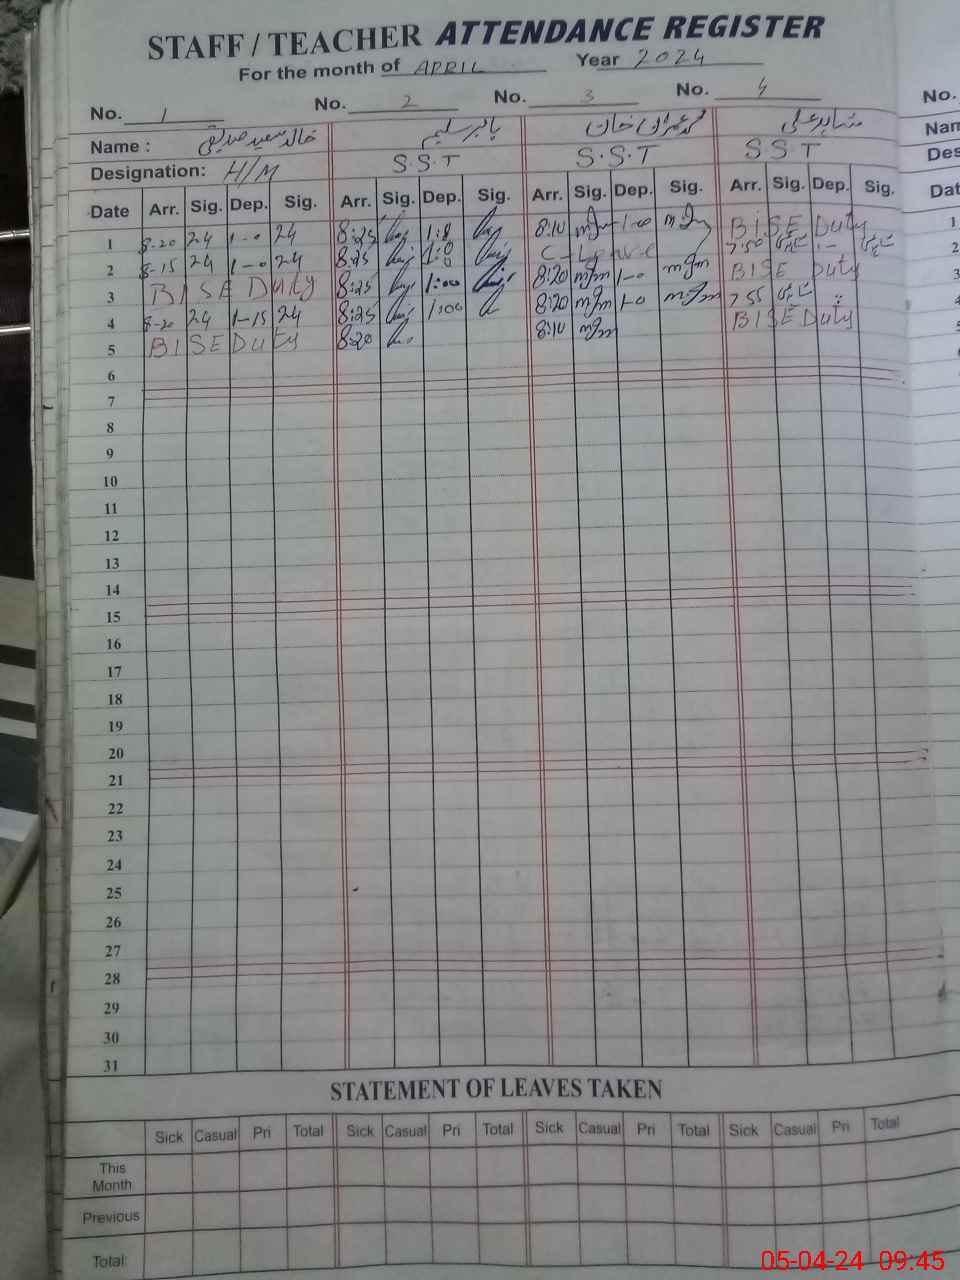 STAFF / TEACHER ATTENDANCE REGISTER
For the month of APRIL Year 2024
No. 1 No. 2 No. 3 No. 4 No.
Name : خالد سعید صدیقی بابر سلیم محمد عمران خان مشاہد علی Nam
Designation: H/M S.S.T S.S.T S.S.T Des
Date Arr. Sig. Dep. Sig. Arr. Sig. Dep. Sig. Arr. Sig. Dep. Sig. Arr. Sig. Dep. Sig. Dat
1 8-20 24 1-0 24 8:25 1:0 8:10 1-00 BISE Duty 1
2 8-15 24 1-0 24 8:25 1:0 C-Leave 7:50 2
3 BISE Duty 8:25 1:00 8:20 1-0 BISE Duty 3
4 8-20 24 1-15 24 8:25 1:00 8:20 1-0 7 55
5 BISE Duty 8:20 8:10 BISE Duty
6
7
8
9
10
11
12
13
14
15
16
17
18
19
20
21
22
23
24
25
26
27
28
29
30
31
STATEMENT OF LEAVES TAKEN
Sick Casual Pri Total Sick Casual Pri Total Sick Casual Pri Total Sick Casual Pri Total
This Month
Previous
Total
05-04-24 09:45